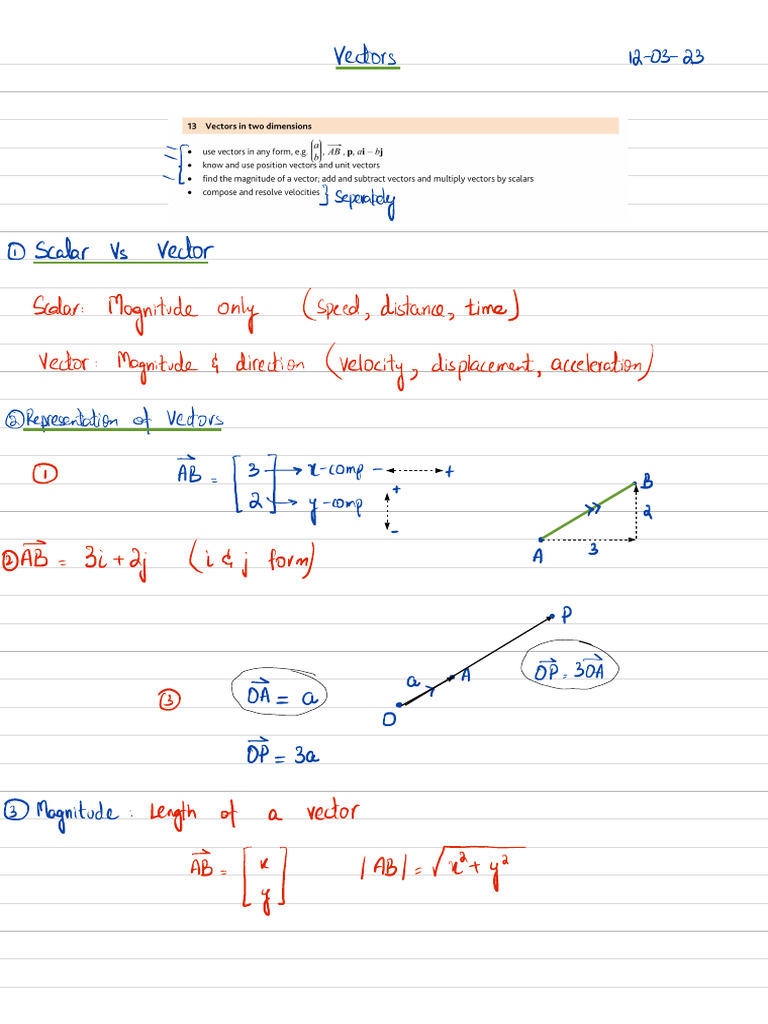 Vectors 12-03-23
13 Vectors in two dimensions
• use vectors in any form, e.g. (a b), AB→, p, ai – bj
• know and use position vectors and unit vectors
• find the magnitude of a vector; add and subtract vectors and multiply vectors by scalars
• compose and resolve velocities } Seperately
① Scalar Vs Vector
Scalar: Magnitude only (speed, distance, time)
Vector: Magnitude & direction (velocity, displacement, acceleration)
② Representation of Vectors
① AB→ = [3 2] → x-comp - +
→ y-comp + -
B
2
A 3
② AB→ = 3i + 2j (i & j form)
P
OP→ = 3OA→
a A
O
③ OA→ = a
OP→ = 3a
③ Magnitude: Length of a vector
AB→ = [x y] |AB| = √x² + y²